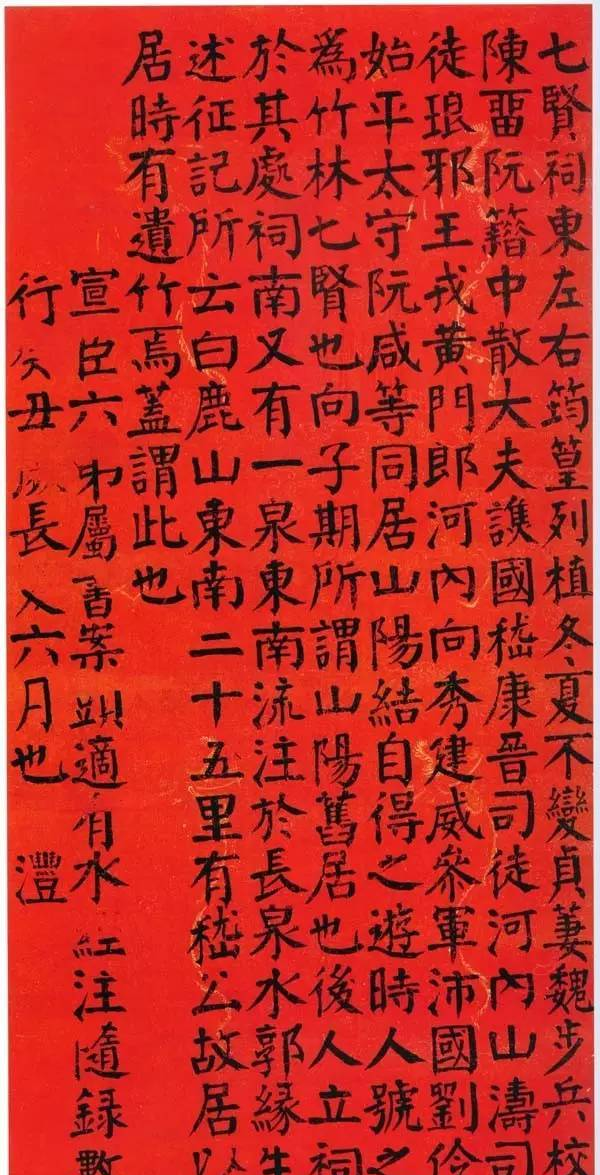 七賢祠東左右筠篁列植冬夏不變貞萋魏步兵校
陳留阮籍中散大夫譙國嵇康晉司徒河內山濤司
徒琅邪王戎黃門郎河內向秀建威參軍沛國劉伶
始平太守阮咸等同居山陽結自得之遊時人號之
為竹林七賢也向子期所謂山陽舊居也後人立祠
於其處祠南又有一泉東南流注於長泉水郭緣生
述征記所云白鹿山東南二十五里有嵇公故居以
居時有遺竹焉蓋謂此也
宣臣六弟屬書案頭適有水經注隨錄數
行癸丑歲長入六月也 澧